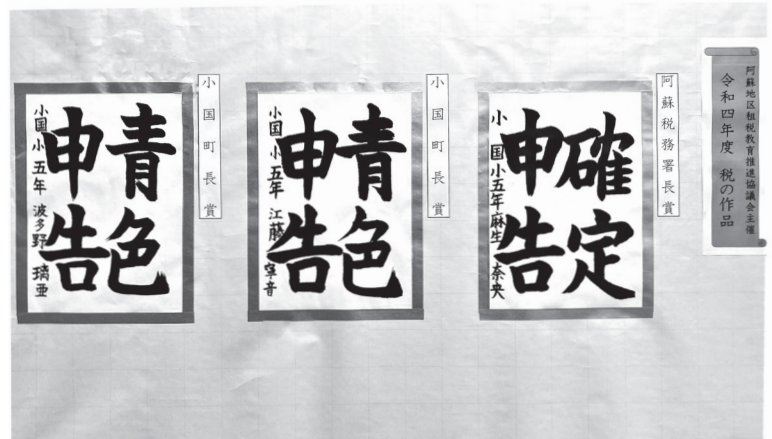 阿蘇地区租税教育推進協議会主催
令和四年度 税の作品
阿蘇税務署長賞
確定
申告
小国小五年麻生奈央
小国町長賞
青色
申告
小国小五年江藤寧音
小国町長賞
青色
申告
小国小五年波多野璃亜